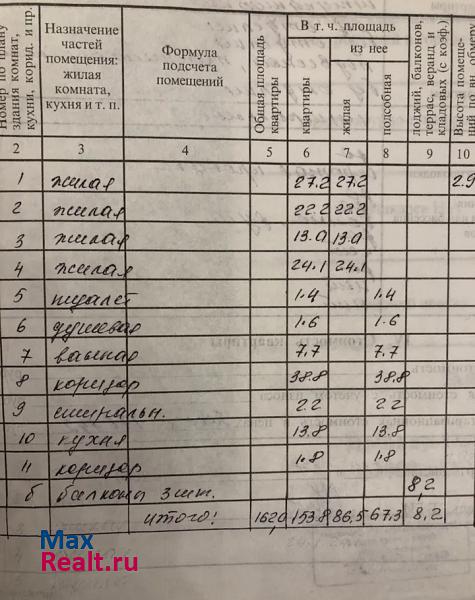 Номер по плану здания комнат, кухни, корид. и пр.
Назначение частей помещения: жилая комната, кухня и т. п.
Формула подсчета помещений
Общая площадь
В т. ч. площадь
из нее
квартиры
жилая
подсобная
лоджий, балконов, террас, веранд и кладовых (с коэф.)
Высота помеще-
2 3 4 5 6 7 8 9 10
1 жилая 27.2 27.2 2.9
2 жилая 22.2 22.2
3 жилая 13.0 13.0
4 жилая 24.1 24.1
5 туалет 1.4 1.4
6 душевая 1.6 1.6
7 ванная 7.7 7.7
8 коридор 38.8 38.8
9 стиральн. 2.2 2.2
10 кухня 13.8 13.8
11 коридор 1.8 1.8
б балконы 3 шт. 8,2
итого: 162,0 153.8 86,5 67.3 8,2
Max
Realt.ru